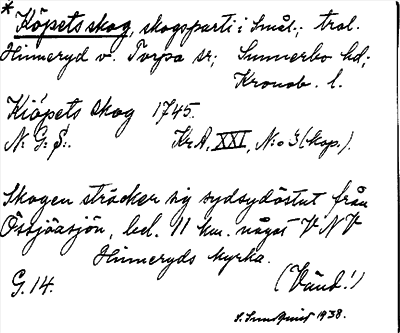 * Köpets skog, skogsparti i Smål.; trol.
Hinneryd v. Torpa sr; Sunnerbo hd;
Kronob. l.
Kiöpets skog 1745.
N: G: S:. KrA, XXI, N:o 3 (kop.).
Skogen sträcker sig sydsydöstut från
Össjöasjön, bel. 11 km. något V N V
Hinneryds kyrka.
G. 14. (Vänd!)
S. Sundquist 1938.